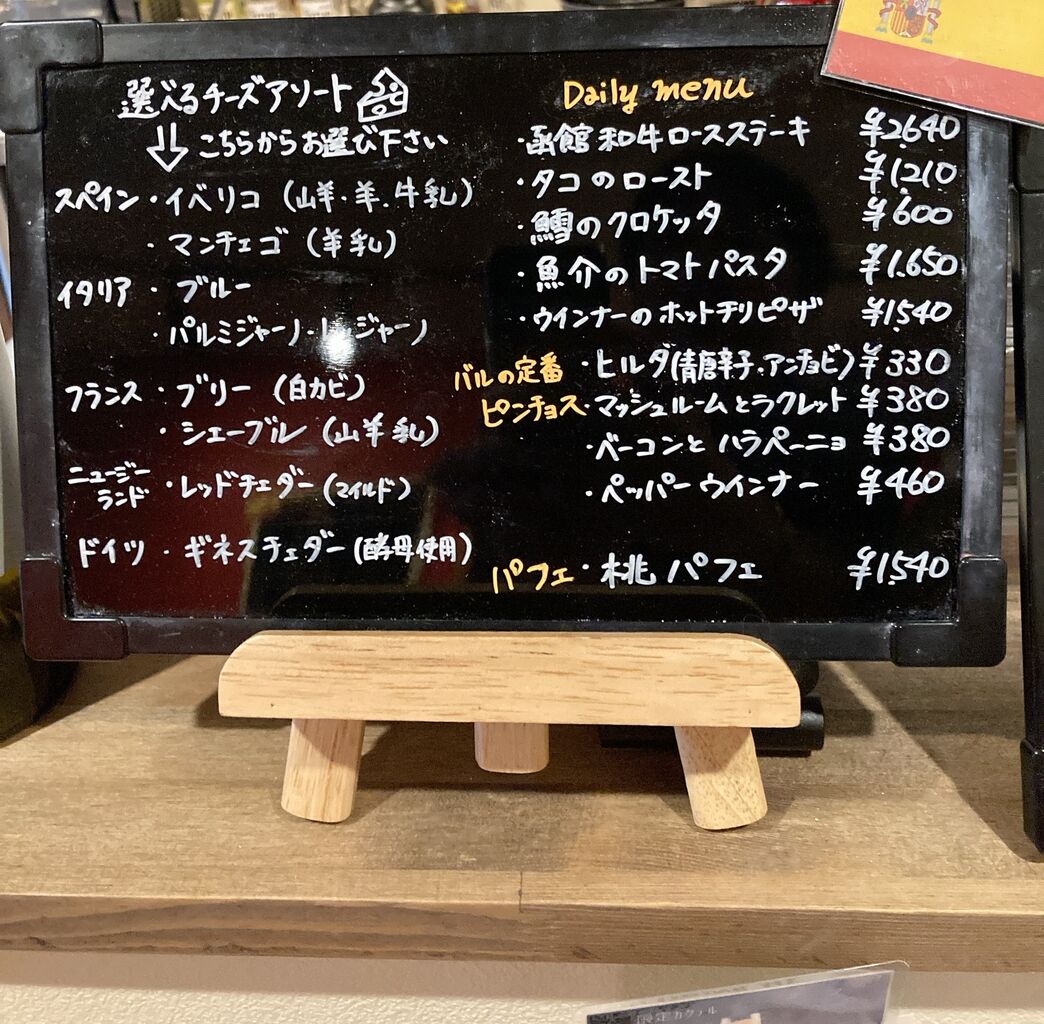 選べるチーズアソート
こちらからお選び下さい
スペイン・イベリコ (山羊・羊・牛乳)
・マンチェゴ (羊乳)
イタリア・ブルー
・パルミジャーノ・レジャーノ
フランス・ブリー (白カビ)
・シェーブル (山羊乳)
ニュージーランド・レッドチェダー (マイルド)
ドイツ・ギネスチェダー (酵母使用)
Daily menu
・函館和牛ロースステーキ ¥2640
・タコのロースト ¥1,210
・鱈のクロケッタ ¥600
・魚介のトマトパスタ ¥1.650
・ウインナーのホットチリピザ ¥1540
バルの定番ピンチョス・ヒルダ(青唐辛子・アンチョビ) ¥330
・マッシュルームとラクレット ¥380
・ベーコンとハラペーニョ ¥380
・ペッパーウインナー ¥460
パフェ・桃パフェ ¥1,540
限定カクテル